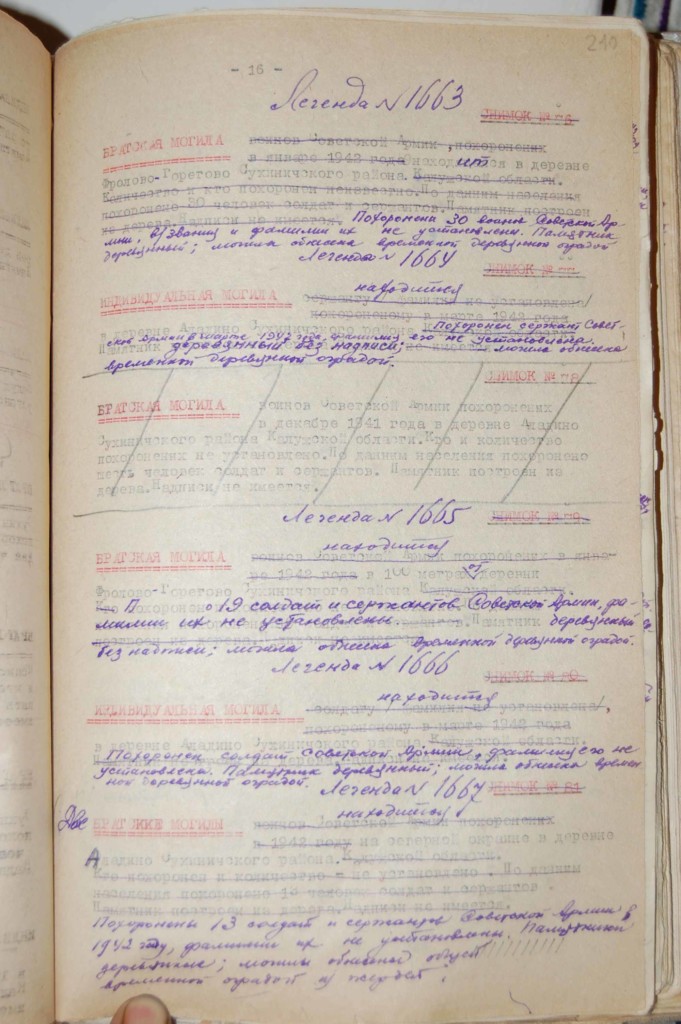 240
- 16 -
Легенда N 1663
СНИМОК № 76
БРАТСКАЯ МОГИЛА воинов Советской Армии, похороненых
в январе 1942 года находится в деревне
Фролово-Горетово Сухиничского района Калужской области.
Количество и кто похоронен неизвестно. По данним населения
похоронено 30 человек солдат и сержантов. Памятник построен
из дерева. Надписи не имеется. Похоронены 30 воинов Советской Ар-
мии, в/звания и фамилии их не установлены. Памятник
деревянный; могила обнесена временной деревянной оградой
Легенда N 1664
СНИМОК № 77
находится
ИНДИВИДУАЛЬНАЯ МОГИЛА сержанту /фамилия не установлена/
похороненому в марте 1942 года
в деревне Аладино Сухиничского района
Похоронен сержант Совет-
ской Армии в марте 1942 года, фамилия его не установлена.
Памятник деревянный без надписи; могила обнесена
временной деревянной оградой.
СНИМОК № 78
БРАТСКАЯ МОГИЛА воинов Советской Армии похороненых
в декабре 1941 года в деревне Аладино
Сухиничского района Калужской области. Кто и количество
похороненых не установлено. По данним населения похоронено
шесть человек солдат и сержантов. Памятник построен из
дерева. Надписи не имеется.
Легенда N 1665
СНИМОК № 79
находится
БРАТСКАЯ МОГИЛА воинов Советской Армии похороненых в янва-
ре 1942 года в 100 метрах от деревни
Фролово-Горетово Сухиничского района Калужской области
19 солдат и сержантов Советской Армии, фа-
милии их не установлены. Памятник деревянный
без надписи; могила обнесена временной деревянной оградой.
Легенда N 1666
СНИМОК № 80
находится
ИНДИВИДУАЛЬНАЯ МОГИЛА солдату /фамилия не установлена/,
похороненому в марте 1942 года
в деревне Аладино Сухиничского района Калужской области.
Похоронен солдат Советской Армии, фамилия его не
установлена. Памятник деревянный; могила обнесена времен-
ной деревянной оградой.
Легенда N 1667
СНИМОК № 81
находится
Две БРАТСКИЕ МОГИЛЫ воинов Советской Армии похороненых
в 1942 году на северной окраине в деревне
Аладино Сухиничского района Калужской области.
Кто похоронен и количество - не установлено. По данным
населения похоронено 13 человек солдат и сержантов.
Памятник построен из дерева. Надписи не имеется.
Похоронены 13 солдат и сержанты Советской Армии в
1942 году, фамилии их не установлены. Памятники
деревянные; могилы обнесены общей
временной оградой из жердей.